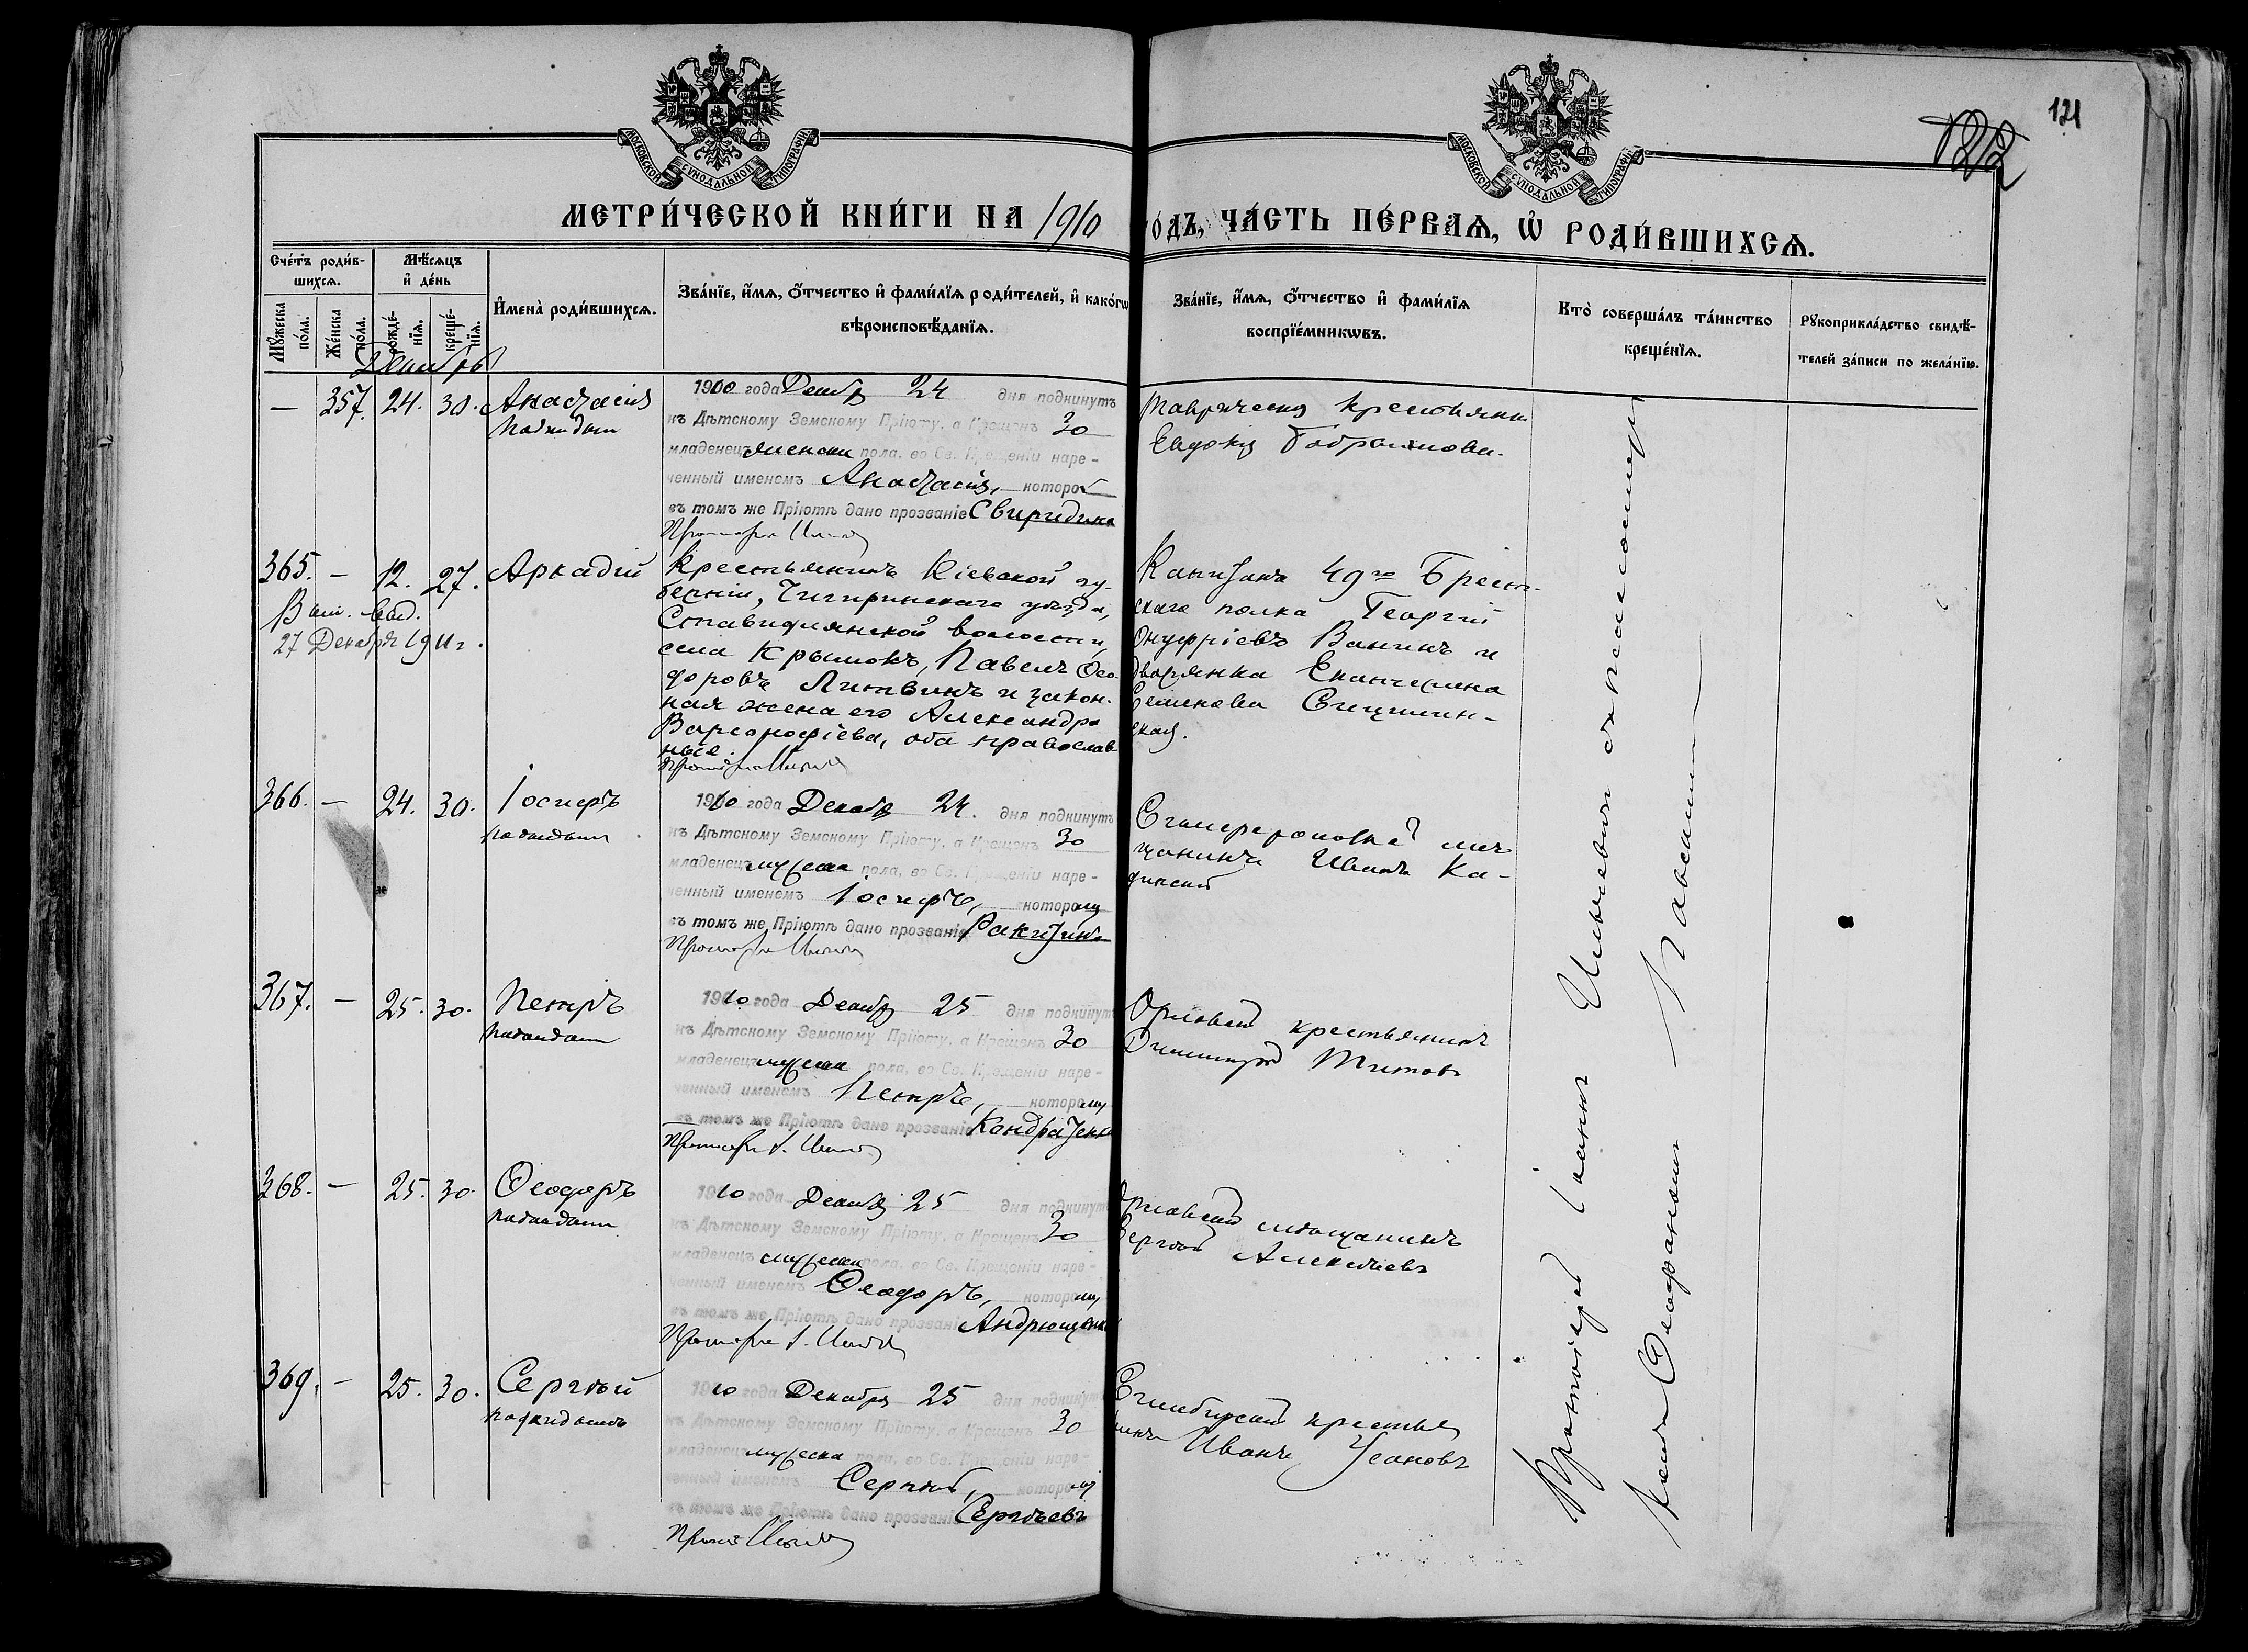 МОСКОВСКОЙ СѴНОДАЛЬНОЙ ТИПОГРАФІИ
МОСКОВСКОЙ СѴНОДАЛЬНОЙ ТИПОГРАФІИ
121
122
МЕТРИ́ЧЕСКОЙ КНИ́ГИ НА 1910
ГОДЪ, ЧА́СТЬ ПЕ́РВАѦ, Ѡ РОДИ́ВШИХСѦ.
Сче́тъ роди́в-
шихсѧ.
Мꙋжеска пола.
Же́нска пола.
Мѣ́сѧцъ
и҆ де́нь
рожде́-
нїѧ.
креще́-
нїѧ.
И҆мена̀ роди́вшихсѧ.
Зва́нїе, и҆́мѧ, ѻ҆́тчество и҆ фами́лїѧ роди́телей, и҆ како́гѡ
вѣроисповѣ́данїѧ.
Зва́нїе, и҆́мѧ, ѻ҆́тчество и҆ фами́лїѧ
воспрїе́мникѡвъ.
Кто̀ соверша́лъ та́инство
креще́нїѧ.
Рꙋкоприкла́дство свидѣ́-
телей за́писи по жела́нїю.
Декабрь
— 357. 24. 30. Анастасія
подкидыш
1910 года Декабр 24 дня подкинутъ
къ Дѣтскому Земскому Пріюту, а Крещенъ 30
младенецъ женска пола, во Св. Крещеніи наре-
ченный именемъ Анастасія, которой
въ томъ же Пріютѣ дано прозваніе Свиридина
Таврическая крестьянка
Евдокія
365. — 12. 27. Аркадій
27 Декабря 1911 г.
Крестьянинъ Кіевской гу-
берніи, Чигиринскаго уѣзда,
Ставидлянской волости,
села Крымокъ, Павелъ Ѳео-
доровъ Литвинъ и закон-
ная жена его Александра
Варсонофіева, оба православ
ные.
Капитанъ 49го Брест-
скаго полка Георгій
Онуфріевъ Ванинъ и
дворянка Екатерина
Семенова
ская.
366. — 24. 30. Іосифъ
подкидыш
1910 года Декабр 24. дня подкинутъ
къ Дѣтскому Земскому Пріюту, а Крещенъ 30
младенецъ мужеска пола, во Св. Крещеніи наре-
ченный именемъ Іосифъ, которому
въ томъ же Пріютѣ дано прозваніе Ракитинъ
Симферопольскій мѣ-
щанинъ Иванъ Ка-
367. — 25. 30. Петръ
подкидыш
1910 года Декабр 25 дня подкинутъ
къ Дѣтскому Земскому Пріюту, а Крещенъ 30
младенецъ мужеска пола, во Св. Крещеніи наре-
ченный именемъ Петръ, которому
въ томъ же Пріютѣ дано прозваніе Кондратенко
Орловскій крестьянинъ
Димитрій Титовъ
368. — 25. 30. Ѳеодоръ
подкидыш
1910 года Декабр 25 дня подкинутъ
къ Дѣтскому Земскому Пріюту, а Крещенъ 30
младенецъ мужеска пола, во Св. Крещеніи наре-
ченный именемъ Ѳеодоръ, которому
въ томъ же Пріютѣ дано прозваніе Андрющенко
Орловскій мѣщанинъ
Сергѣй Алексѣевъ
369. — 25. 30. Сергѣй
подкидышъ
1910 года Декабря 25 дня подкинутъ
къ Дѣтскому Земскому Пріюту, а Крещенъ 30
младенецъ мужеска пола, во Св. Крещеніи наре-
ченный именемъ Сергѣй, которому
въ томъ же Пріютѣ дано прозваніе Сергѣевъ
Симбирскій крестья
нинъ Иванъ Усановъ
Протоіерей Іоаннъ Ильчевичъ съ псаломщикомъ